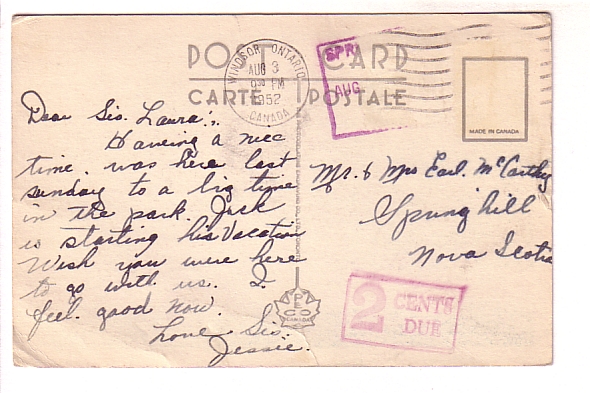 POST CARD
CARTE POSTALE
WINDSOR ONTARIO
AUG 3
9 30 PM
1952
CANADA
SPRI
AUG
MADE IN CANADA
Dear Sis. Laura.,
Haveing a nice
time. was here last
sunday to a big time
in the park. Jack
is starting his Vacation
Wish you were here
to go with us. I
feel good now.
Love Sis.
Jessie.
Mr. & Mrs Earl. McCarthy
Spring hill
Nova Scotia
PECO
CANADA
2 CENTS
DUE